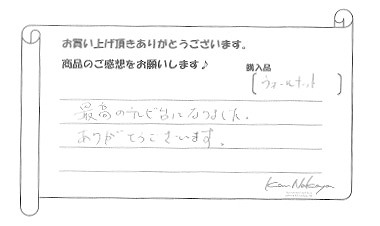 お買い上げ頂きありがとうございます。
商品のご感想をお願いします♪
購入品
ウォールナット
最高のテレビ台になりました。
ありがとうございます。